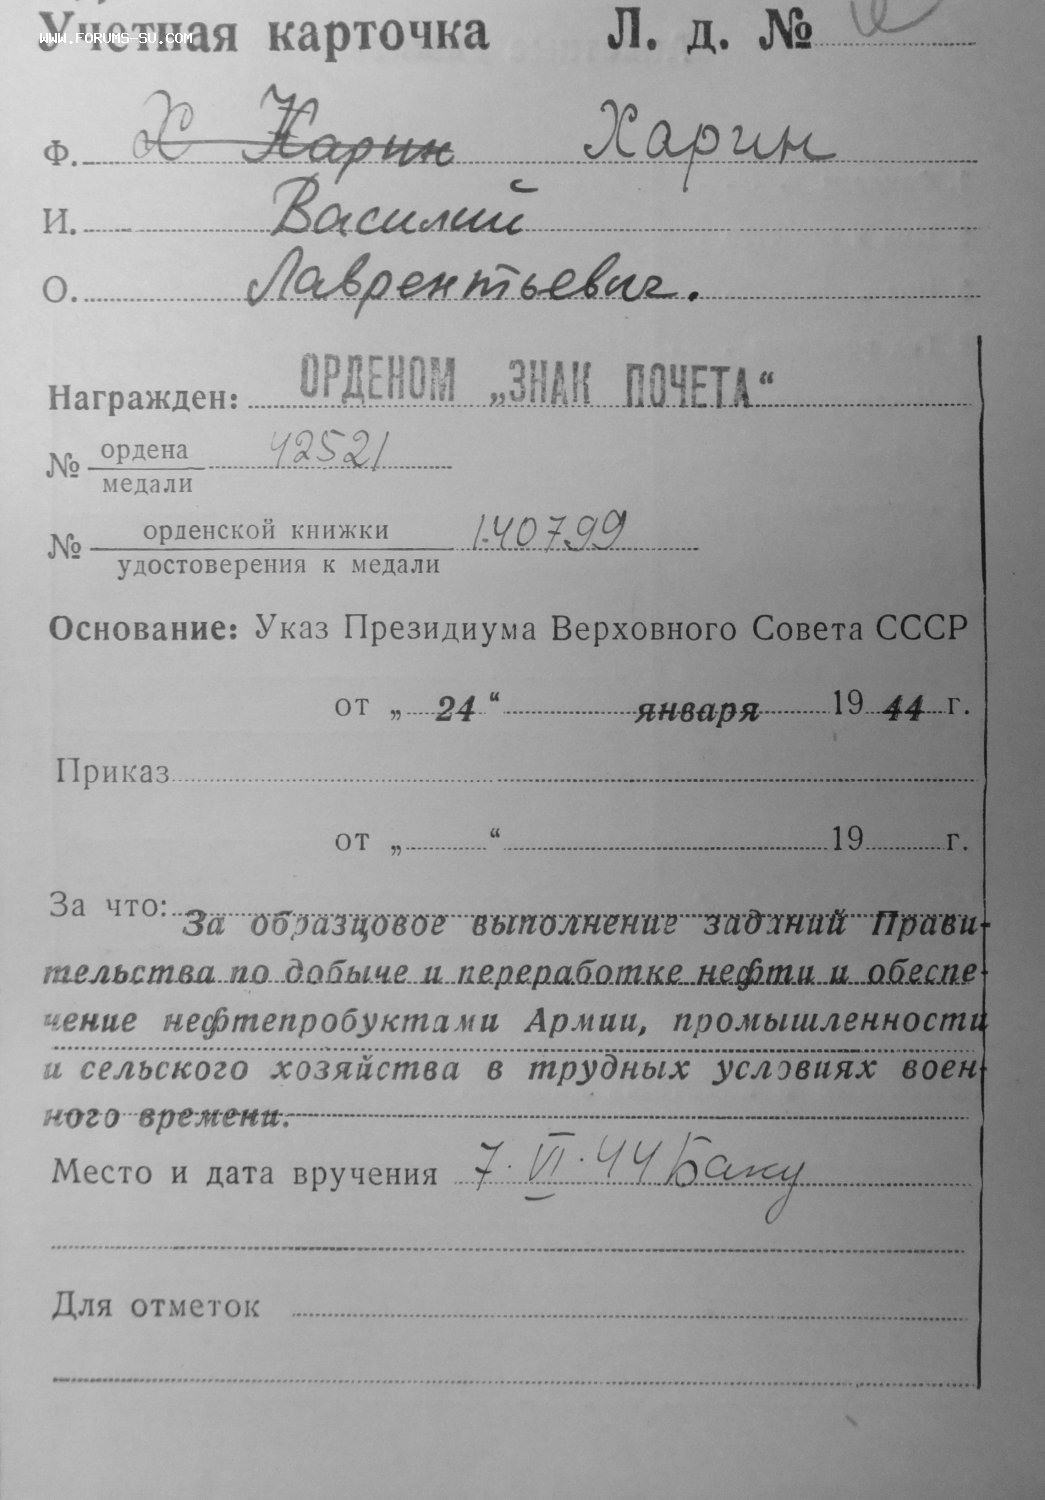 WWW.FORUMS-SU.COM
Учетная карточка Л. д. №
Ф. Х Карин Харин
И. Василий
О. Лаврентьевич.
Награжден: ОРДЕНОМ „ЗНАК ПОЧЕТА“
№ ордена 42521
медали
№ орденской книжки 140799
удостоверения к медали
Основание: Указ Президиума Верховного Совета СССР
от „ 24 “ января 19 44 г.
Приказ
от „ “ 19 г.
За что:
За образцовое выполнение заданий Прави-
тельства по добыче и переработке нефти и обеспе-
чение нефтепробуктами Армии, промышленности
и сельского хозяйства в трудных условиях воен-
ного времени.
Место и дата вручения 7. VI. 44 Баку
Для отметок